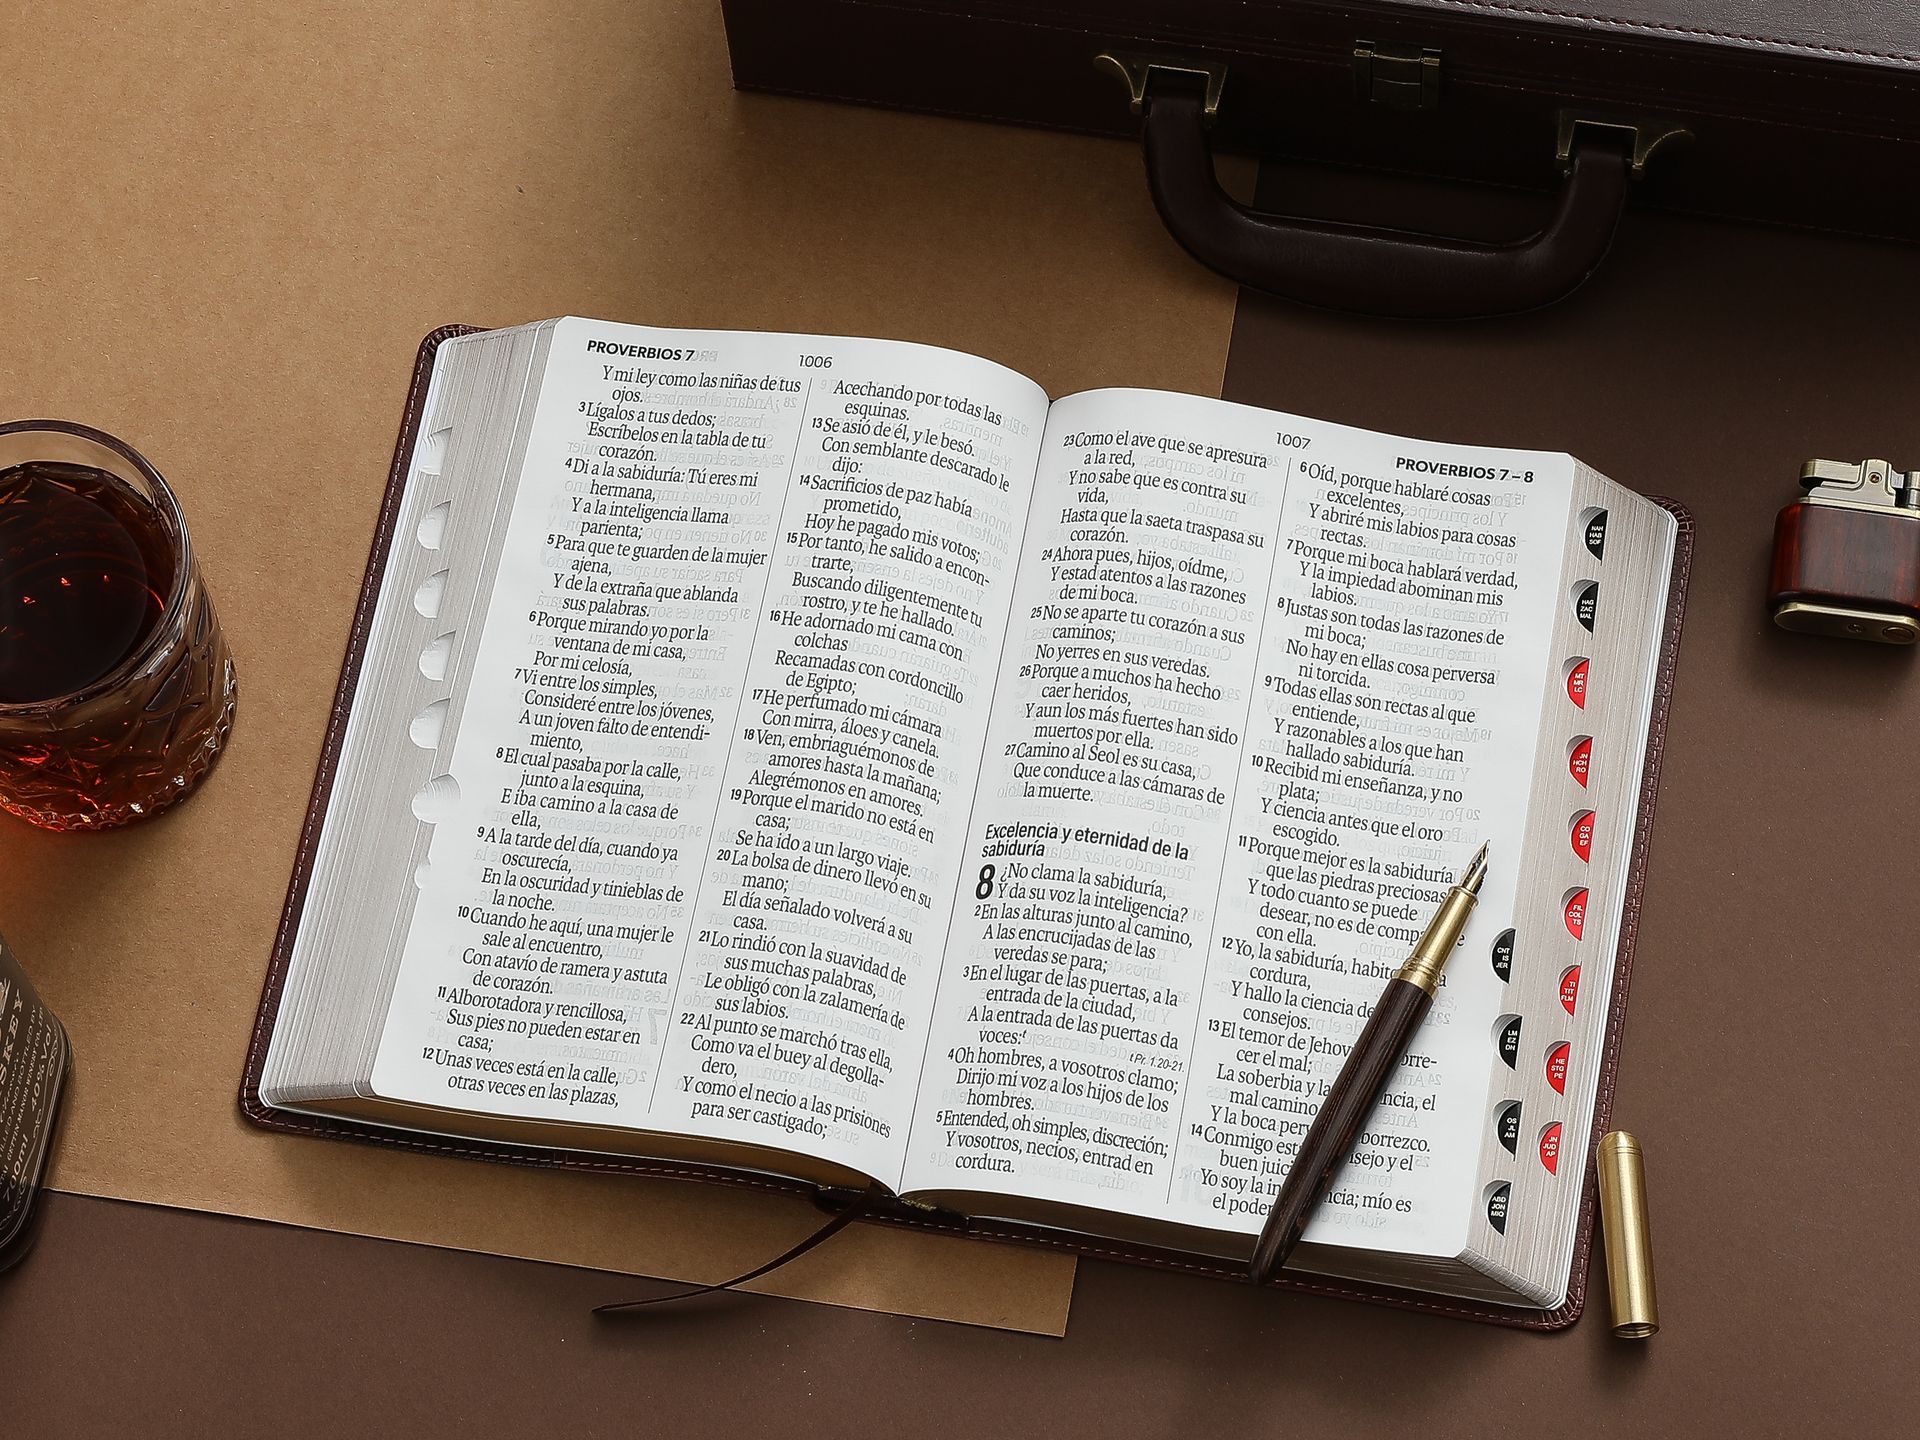 PROVERBIOS 7
1006
Y mi ley como las niñas de tus
ojos.
3 Lígalos a tus dedos;
Escríbelos en la tabla de tu
corazón.
4 Di a la sabiduría: Tú eres mi
hermana,
Y a la inteligencia llama
parienta;
5 Para que te guarden de la mujer
ajena,
Y de la extraña que ablanda
sus palabras.
6 Porque mirando yo por la
ventana de mi casa,
Por mi celosía,
7 Vi entre los simples,
Consideré entre los jóvenes,
A un joven falto de entendi-
miento,
8 El cual pasaba por la calle,
junto a la esquina,
E iba camino a la casa de
ella,
9 A la tarde del día, cuando ya
oscurecía,
En la oscuridad y tinieblas de
la noche.
10 Cuando he aquí, una mujer le
sale al encuentro,
Con atavío de ramera y astuta
de corazón.
11 Alborotadora y rencillosa,
Sus pies no pueden estar en
casa;
12 Unas veces está en la calle,
otras veces en las plazas,
Acechando por todas las
esquinas.
13 Se asió de él, y le besó.
Con semblante descarado le
dijo:
14 Sacrificios de paz había
prometido,
Hoy he pagado mis votos;
15 Por tanto, he salido a encon-
trarte,
Buscando diligentemente tu
rostro, y te he hallado.
16 He adornado mi cama con
colchas
Recamadas con cordoncillo
de Egipto;
17 He perfumado mi cámara
Con mirra, áloes y canela.
18 Ven, embriaguémonos de
amores hasta la mañana;
Alegrémonos en amores.
19 Porque el marido no está en
casa;
Se ha ido a un largo viaje.
20 La bolsa de dinero llevó en su
mano;
El día señalado volverá a su
casa.
21 Lo rindió con la suavidad de
sus muchas palabras,
Le obligó con la zalamería de
sus labios.
22 Al punto se marchó tras ella,
Como va el buey al degolla-
dero,
Y como el necio a las prisiones
para ser castigado;
1007
PROVERBIOS 7 – 8
23 Como el ave que se apresura
a la red,
Y no sabe que es contra su
vida,
Hasta que la saeta traspasa su
corazón.
24 Ahora pues, hijos, oídme,
Y estad atentos a las razones
de mi boca.
25 No se aparte tu corazón a sus
caminos;
No yerres en sus veredas.
26 Porque a muchos ha hecho
caer heridos,
Y aun los más fuertes han sido
muertos por ella.
27 Camino al Seol es su casa,
Que conduce a las cámaras de
la muerte.
Excelencia y eternidad de la
sabiduría
8 ¿No clama la sabiduría,
Y da su voz la inteligencia?
2 En las alturas junto al camino,
A las encrucijadas de las
veredas se para;
3 En el lugar de las puertas, a la
entrada de la ciudad,
A la entrada de las puertas da
voces:t
t Pr. 1.20-21.
4 Oh hombres, a vosotros clamo;
Dirijo mi voz a los hijos de los
hombres.
5 Entended, oh simples, discreción;
Y vosotros, necios, entrad en
cordura.
6 Oíd, porque hablaré cosas
excelentes,
Y abriré mis labios para cosas
rectas.
7 Porque mi boca hablará verdad,
Y la impiedad abominan mis
labios.
8 Justas son todas las razones de
mi boca;
No hay en ellas cosa perversa
ni torcida.
9 Todas ellas son rectas al que
entiende,
Y razonables a los que han
hallado sabiduría.
10 Recibid mi enseñanza, y no
plata;
Y ciencia antes que el oro
escogido.
11 Porque mejor es la sabiduría
que las piedras preciosas
Y todo cuanto se puede
desear, no es de
con ella.
12 Yo, la sabiduría,
cordura,
Y hallo la ciencia de
consejos.
13 El temor de
cer el mal;
La soberbia y la el
mal camino
Y la boca
14 Conmigo y el
buen
Yo soy la mío es
el poder
NAH
HAB
SOF
HAG
ZAC
MAL
MT
MR
LC
JN
HCH
RO
CO
GA
EF
FIL
COL
TS
TI
TIT
FLM
HE
STG
PE
JN
JUD
AP
CNT
IS
JER
LM
EZ
DN
OS
JL
AM
ABD
JON
MIQ
700ml 40%Vol